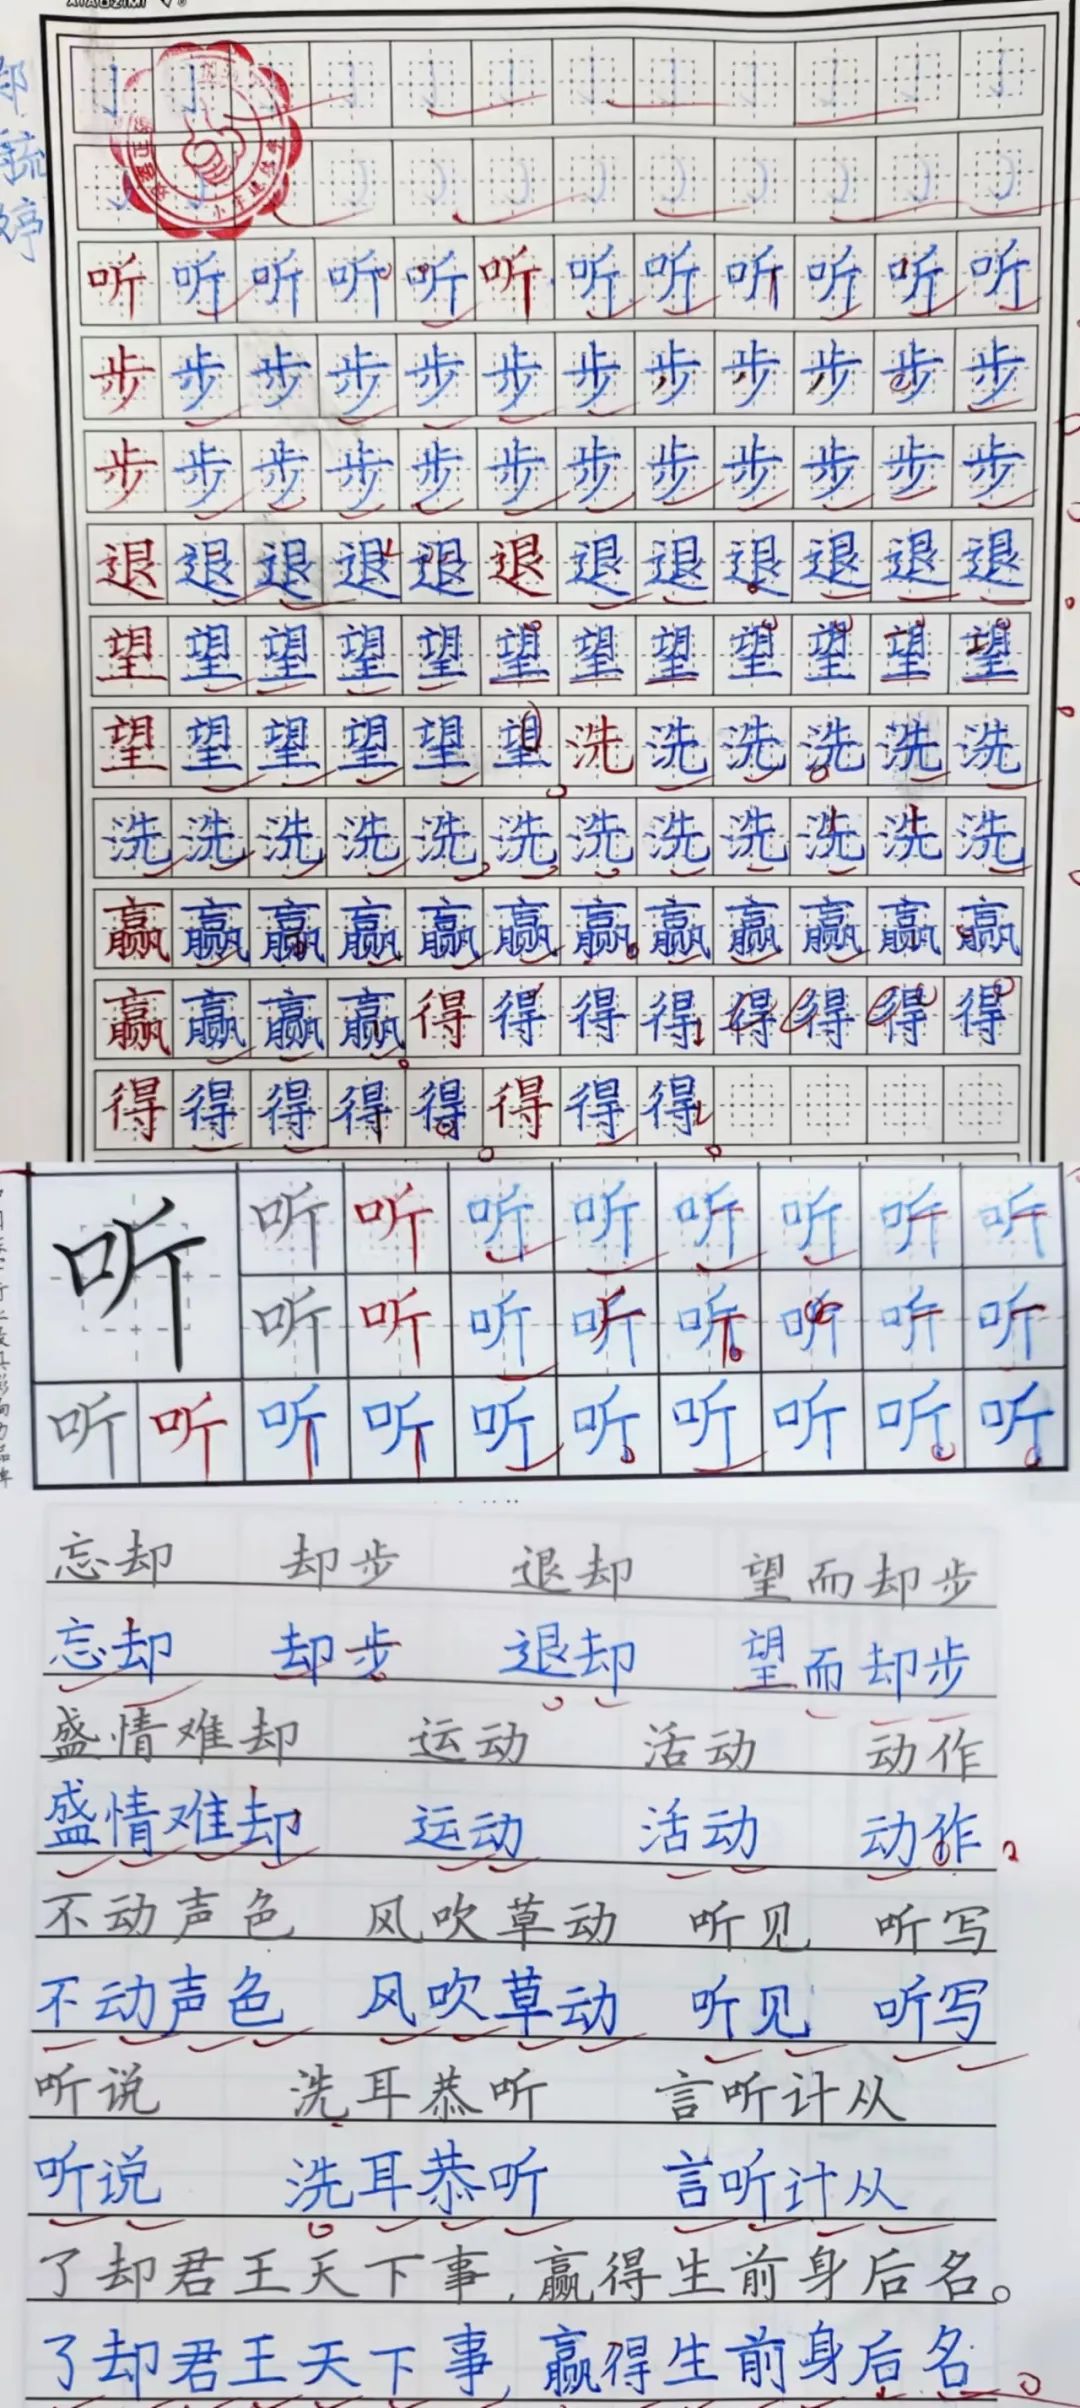 听听听听听听听听听听听听
步步步步步步步步步步步步
步步步步步步步步步步步步
退退退退退退退退退退退退
望望望望望望望望望望望望
望望望望望望洗洗洗洗洗洗
洗洗洗洗洗洗洗洗洗洗洗洗
赢赢赢赢赢赢赢赢赢赢赢赢
赢赢赢赢得得得得得得得得
得得得得得得得得
听 听听听听听听听听
听听听听听听听听
听听听听听听听听听听
忘却 却步 退却 望而却步
忘却 却步 退却 望而却步
盛情难却 运动 活动 动作
盛情难却 运动 活动 动作
不动声色 风吹草动 听见 听写
不动声色 风吹草动 听见 听写
听说 洗耳恭听 言听计从
听说 洗耳恭听 言听计从
了却君王天下事,赢得生前身后名。
了却君王天下事,赢得生前身后名